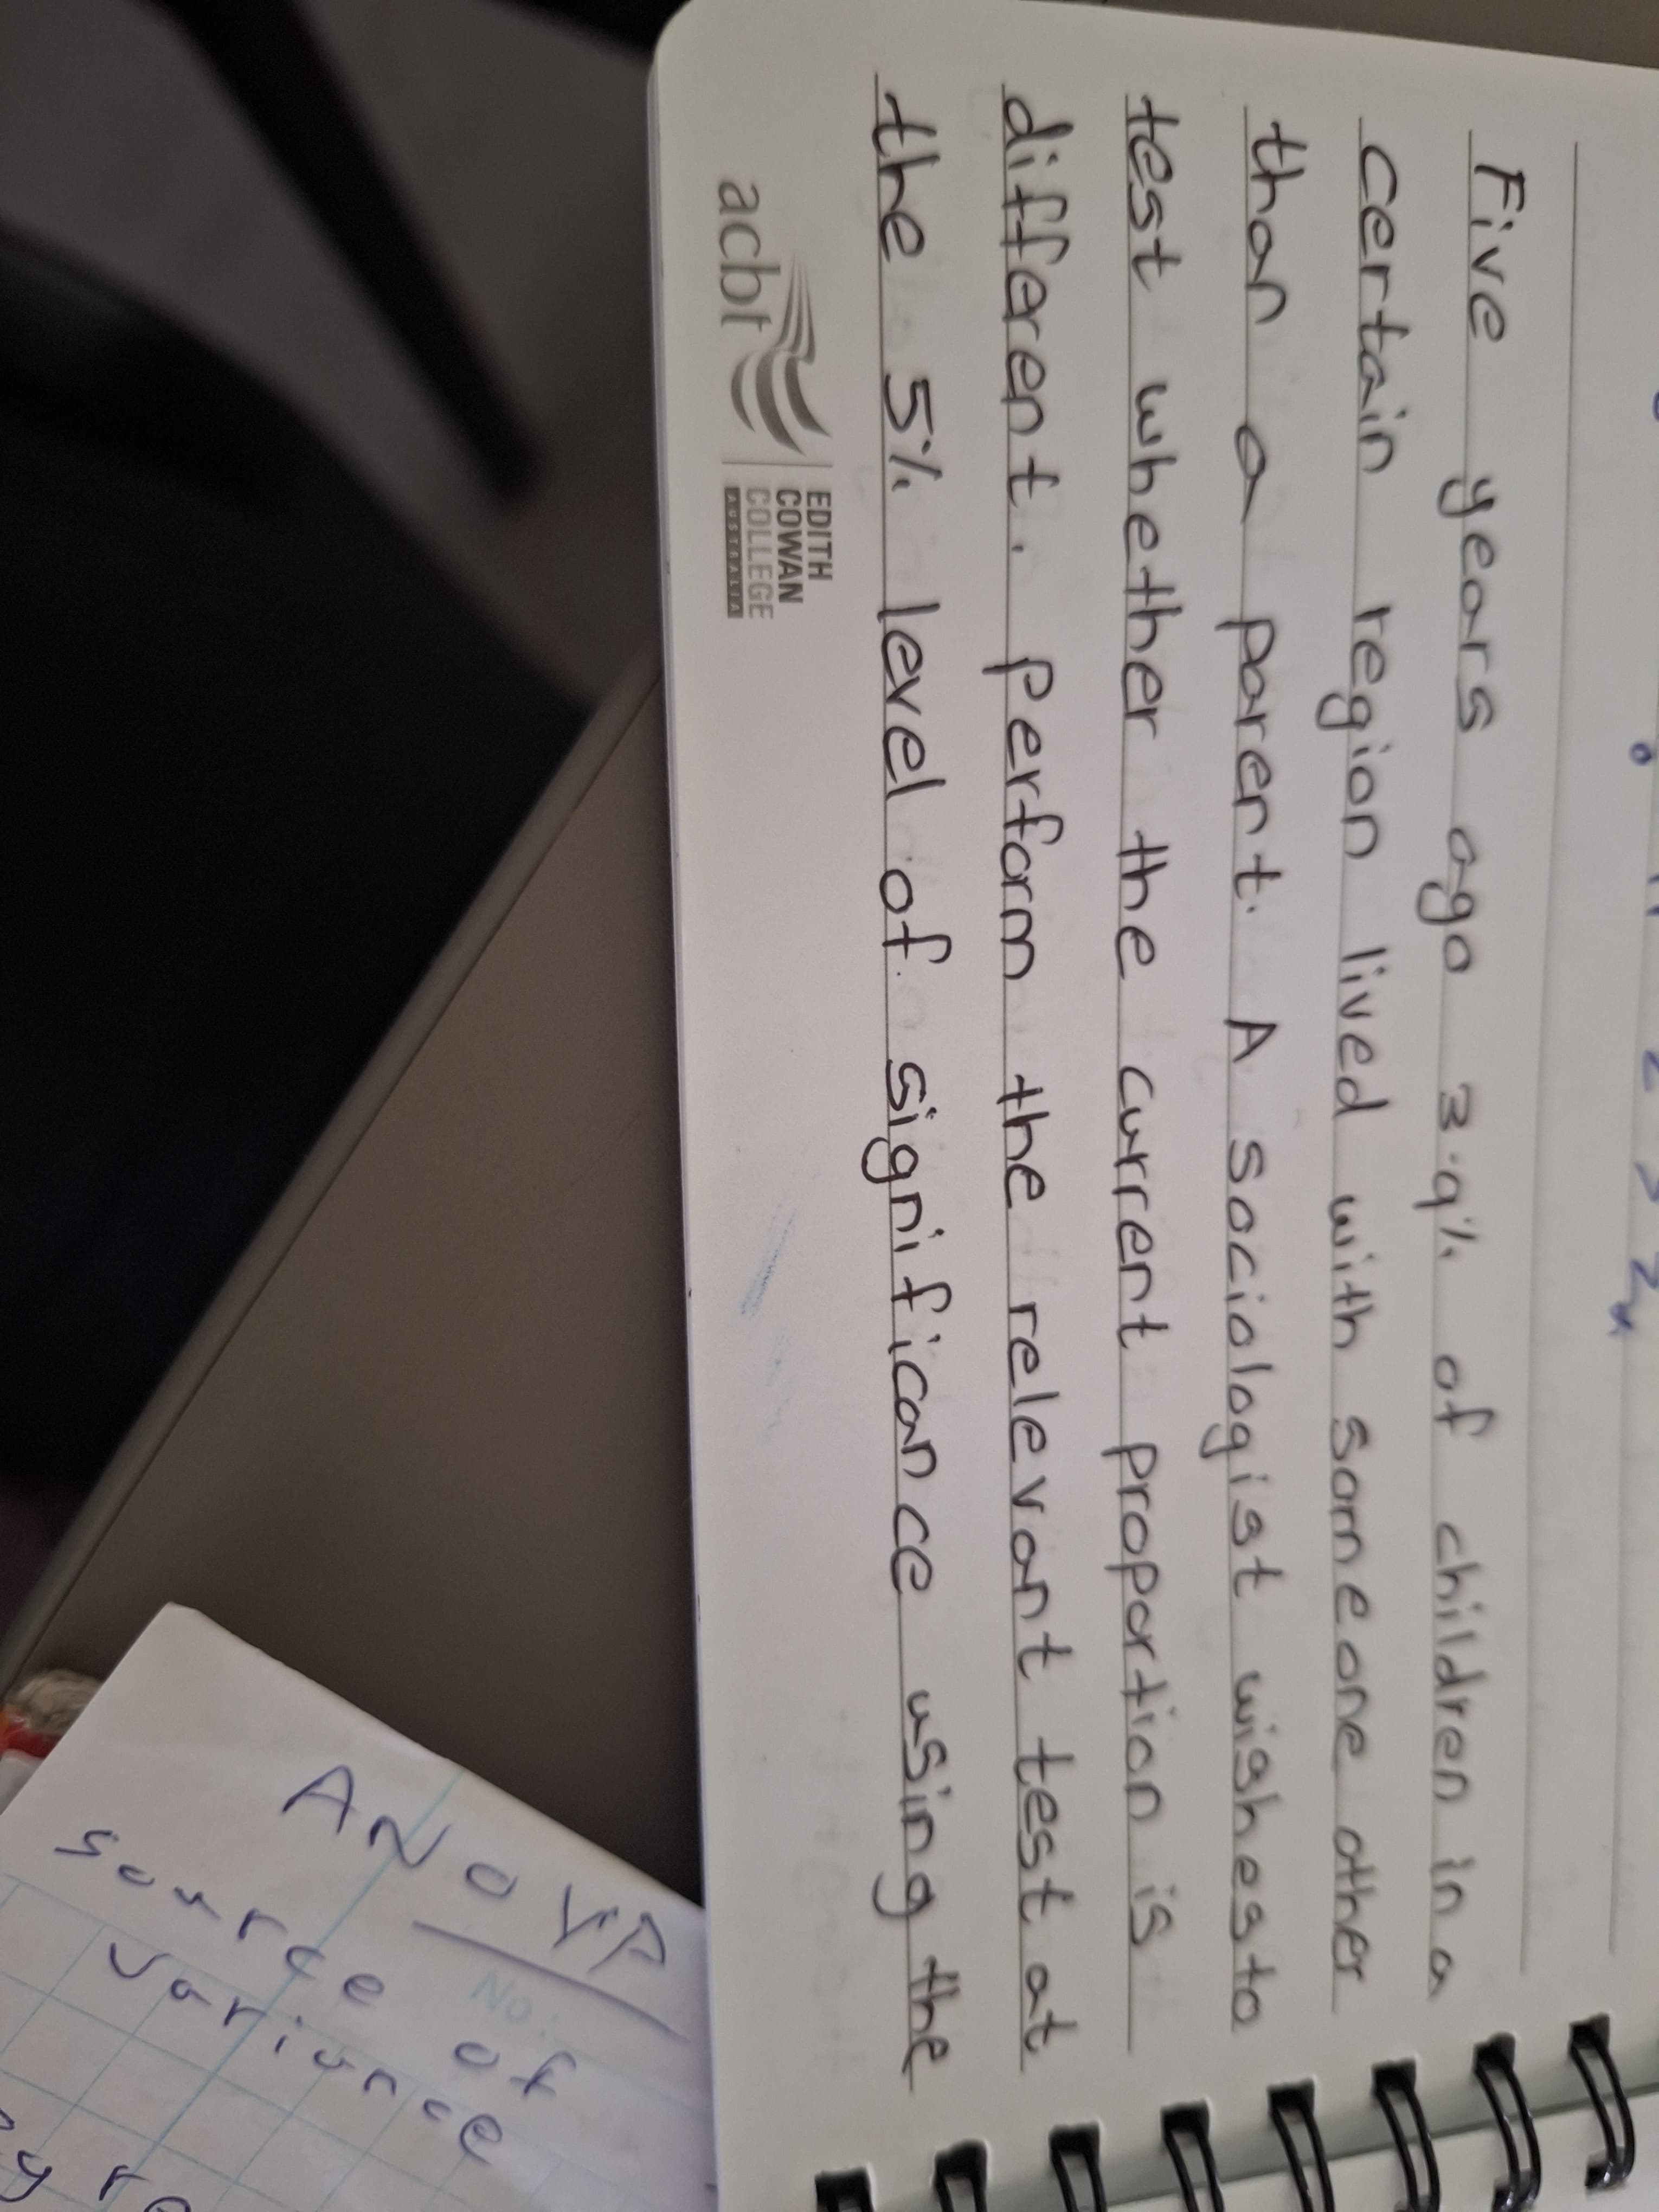 Five years ago 3.9% of children in a
certain region lived with someone other
than a parent. A sociologist wishes to
test whether the current proportion is
different. Perform the relevant test at
the 5% level of significance using the
acbt
EDITH
COWAN
COLLEGE
AUSTRALIA
ANOVA
No:
source of
variance